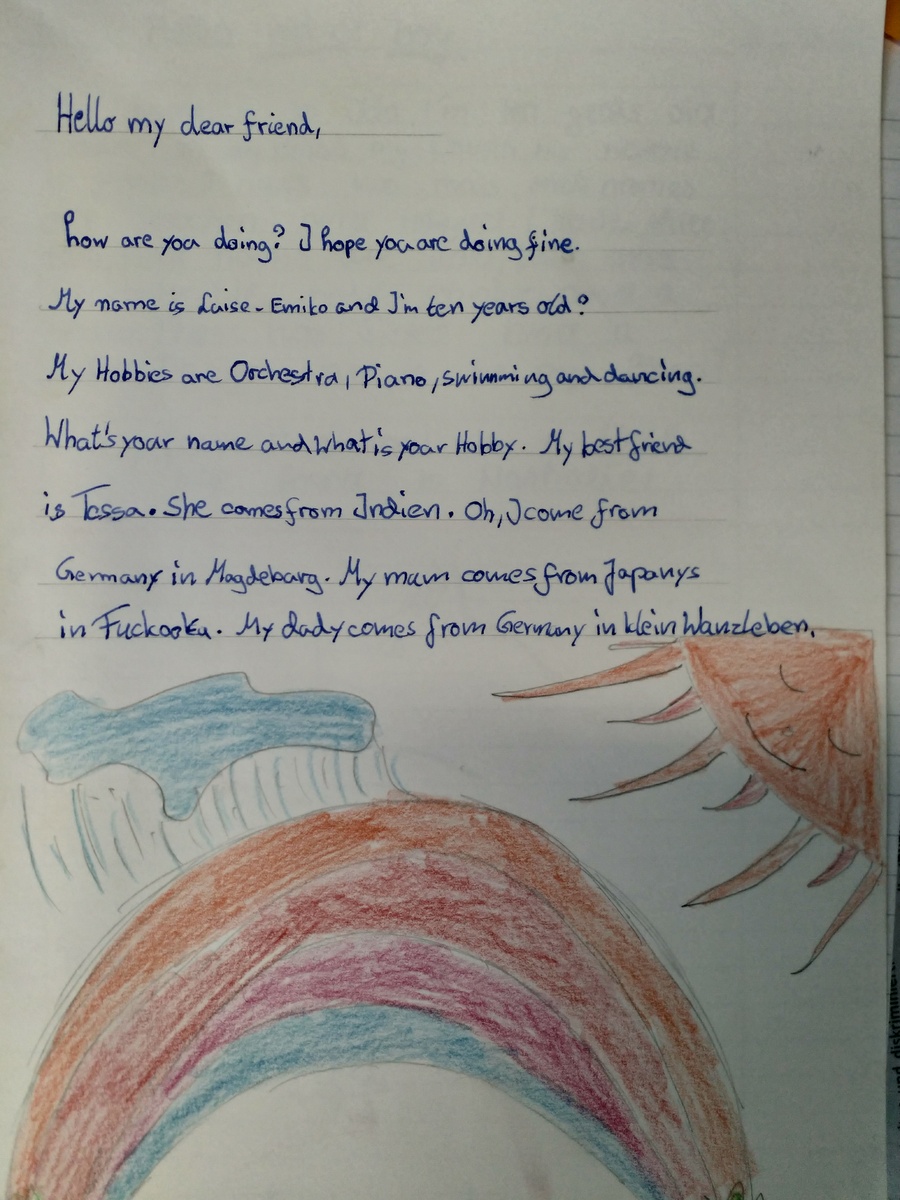 Hello my dear friend,
how are you doing? I hope you are doing fine.
My name is Luise-Emiko and I'm ten years old?
My Hobbies are Orchestra, Piano, swimming and dancing.
What's your name and what is your Hobby. My best friend
is Tessa. She comes from Indien. Oh, I come from
Germany in Magdeburg. My mum comes from Japanys
in Fuckooka. My dady comes from Germany in klein Wanzleben.